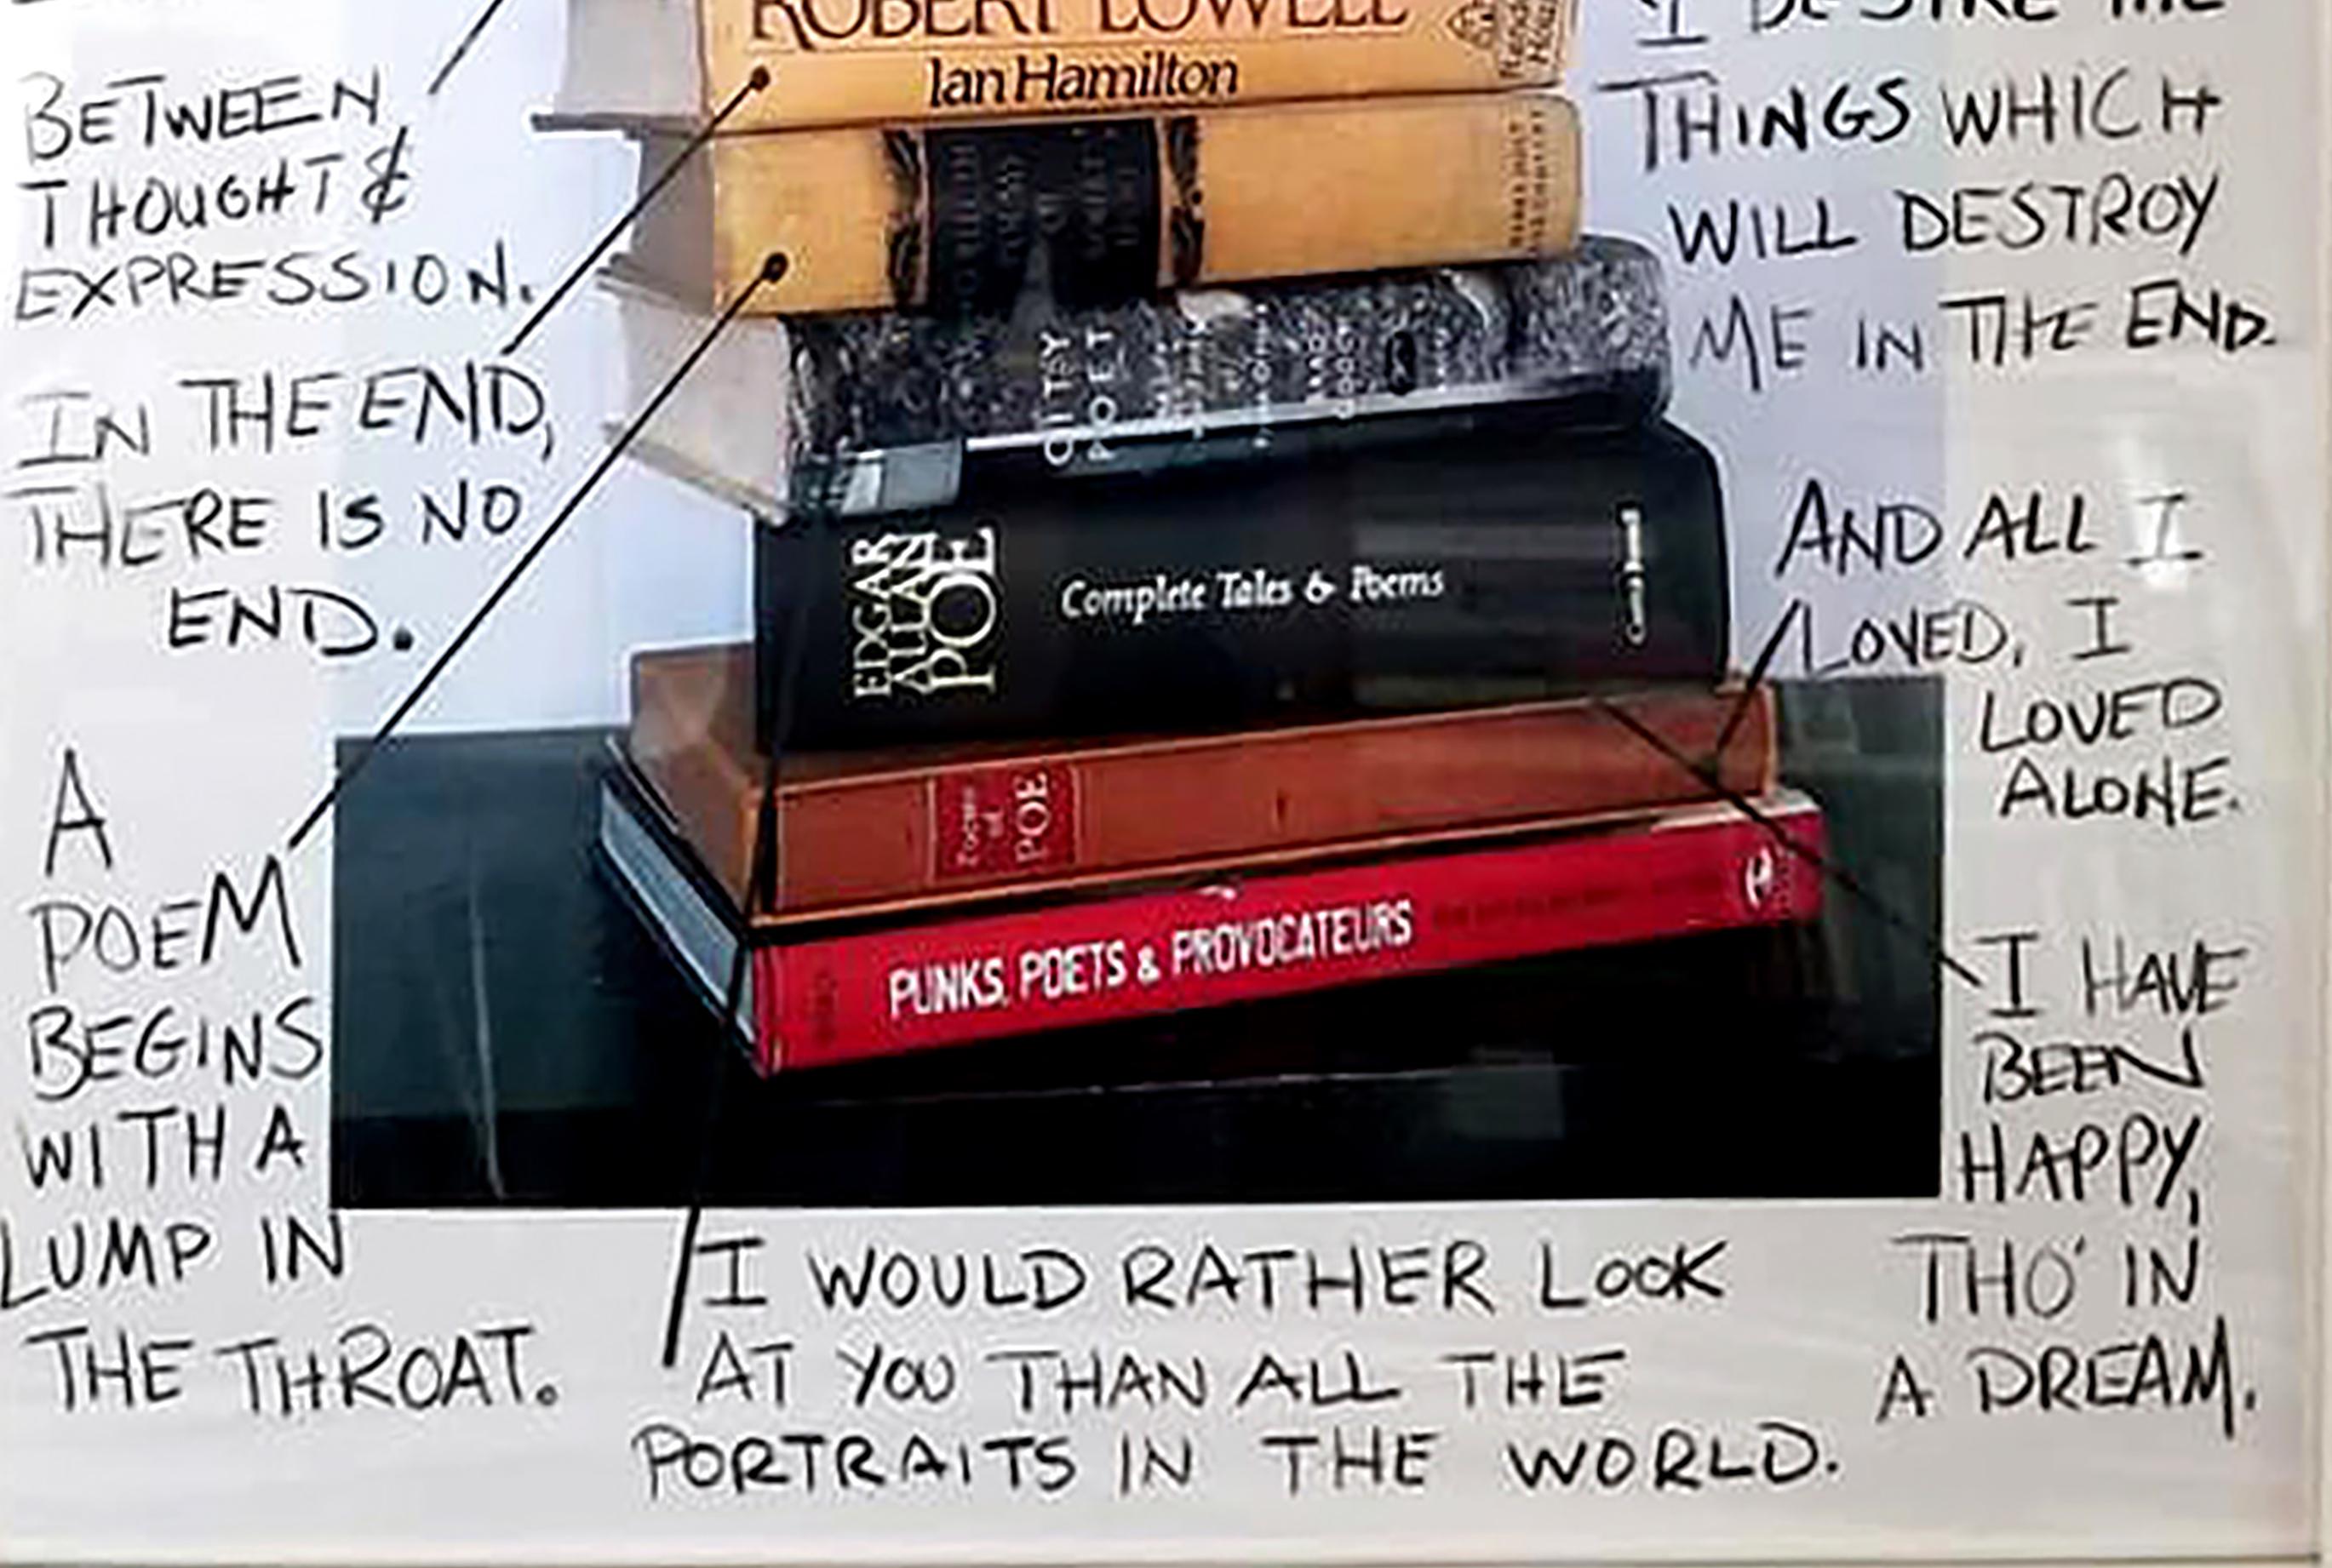 ROBERT LOWELL
Ian Hamilton
BETWEEN
THOUGHT &
EXPRESSION.
IN THE END,
THERE IS NO
END.
A
POEM
BEGINS
WITH A
LUMP IN
THE THROAT.
CITY
POET
EDGAR
ALLAN
POE
Complete Tales & Poems
Poems
of
POE
PUNKS, POETS & PROVOCATEURS
I DESIRE THE
THINGS WHICH
WILL DESTROY
ME IN THE END.
AND ALL I
LOVED, I
LOVED
ALONE.
I HAVE
BEEN
HAPPY,
THO' IN
A DREAM.
I WOULD RATHER LOOK
AT YOU THAN ALL THE
PORTRAITS IN THE WORLD.